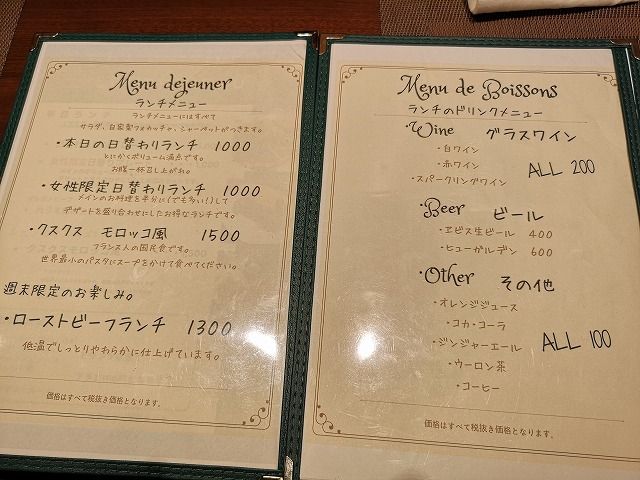 Menu dejeuner
ランチメニュー
ランチメニューにはすべて
サラダ、自家製フォカッチャ、シャーベットがつきます。
・本日の日替わりランチ 1000
とにかくボリューム満点です。
お腹一杯召し上がれ。
・女性限定日替わりランチ 1000
メインのお料理を半分に(でも多い!)して
デザートを盛り合わせにしたお得なランチです。
・クスクス モロッコ風 1500
フランス人の国民食です。
世界最小のパスタにスープをかけて食べてください。
週末限定のお楽しみ。
・ローストビーフランチ 1300
低温でしっとりやわらかに仕上げています。
価格はすべて税抜き価格となります。
Menu de Boissons
ランチのドリンクメニュー
・Wine グラスワイン
・白ワイン
・赤ワイン
・スパークリングワイン
ALL 200
・Beer ビール
・ヱビス生ビール 400
・ヒューガルデン 600
・Other その他
・オレンジジュース
・コカ・コーラ
・ジンジャーエール
ALL 100
・ウーロン茶
・コーヒー
価格はすべて税抜き価格となります。